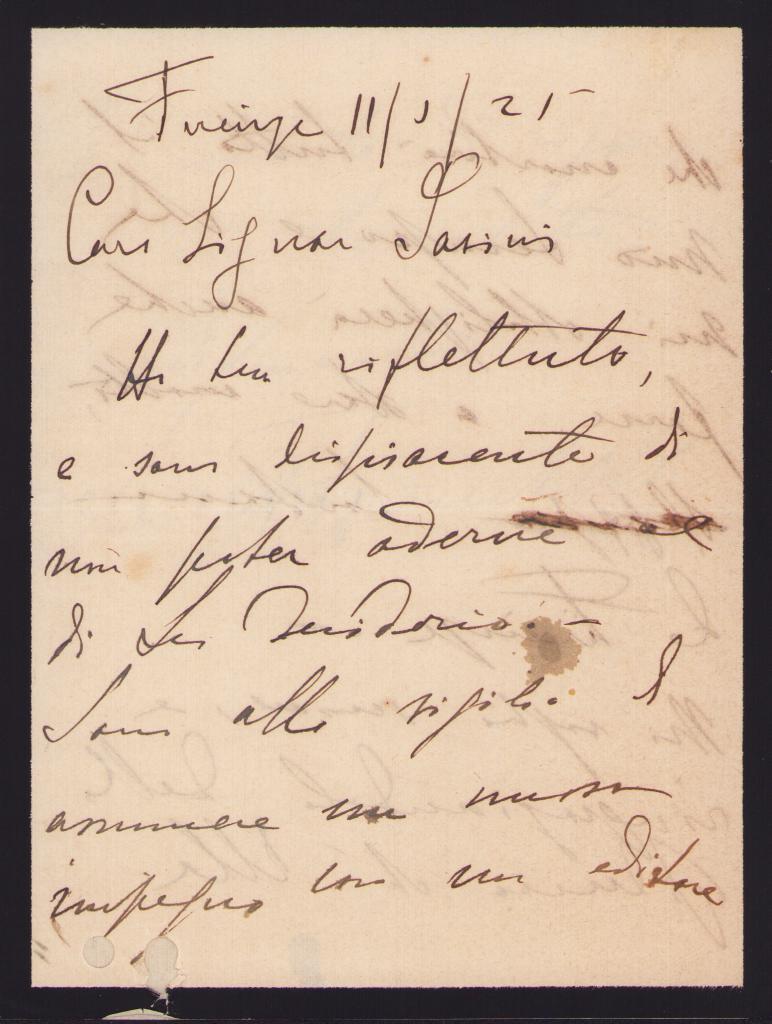 Firenze 11/1/25
Caro Signor Sarini
Ho ben riflettuto,
e sono dispiacente di
non poter aderire al
di Lei desiderio. —
Sono alla vigilia di
assumere un nuovo
impegno con un editore